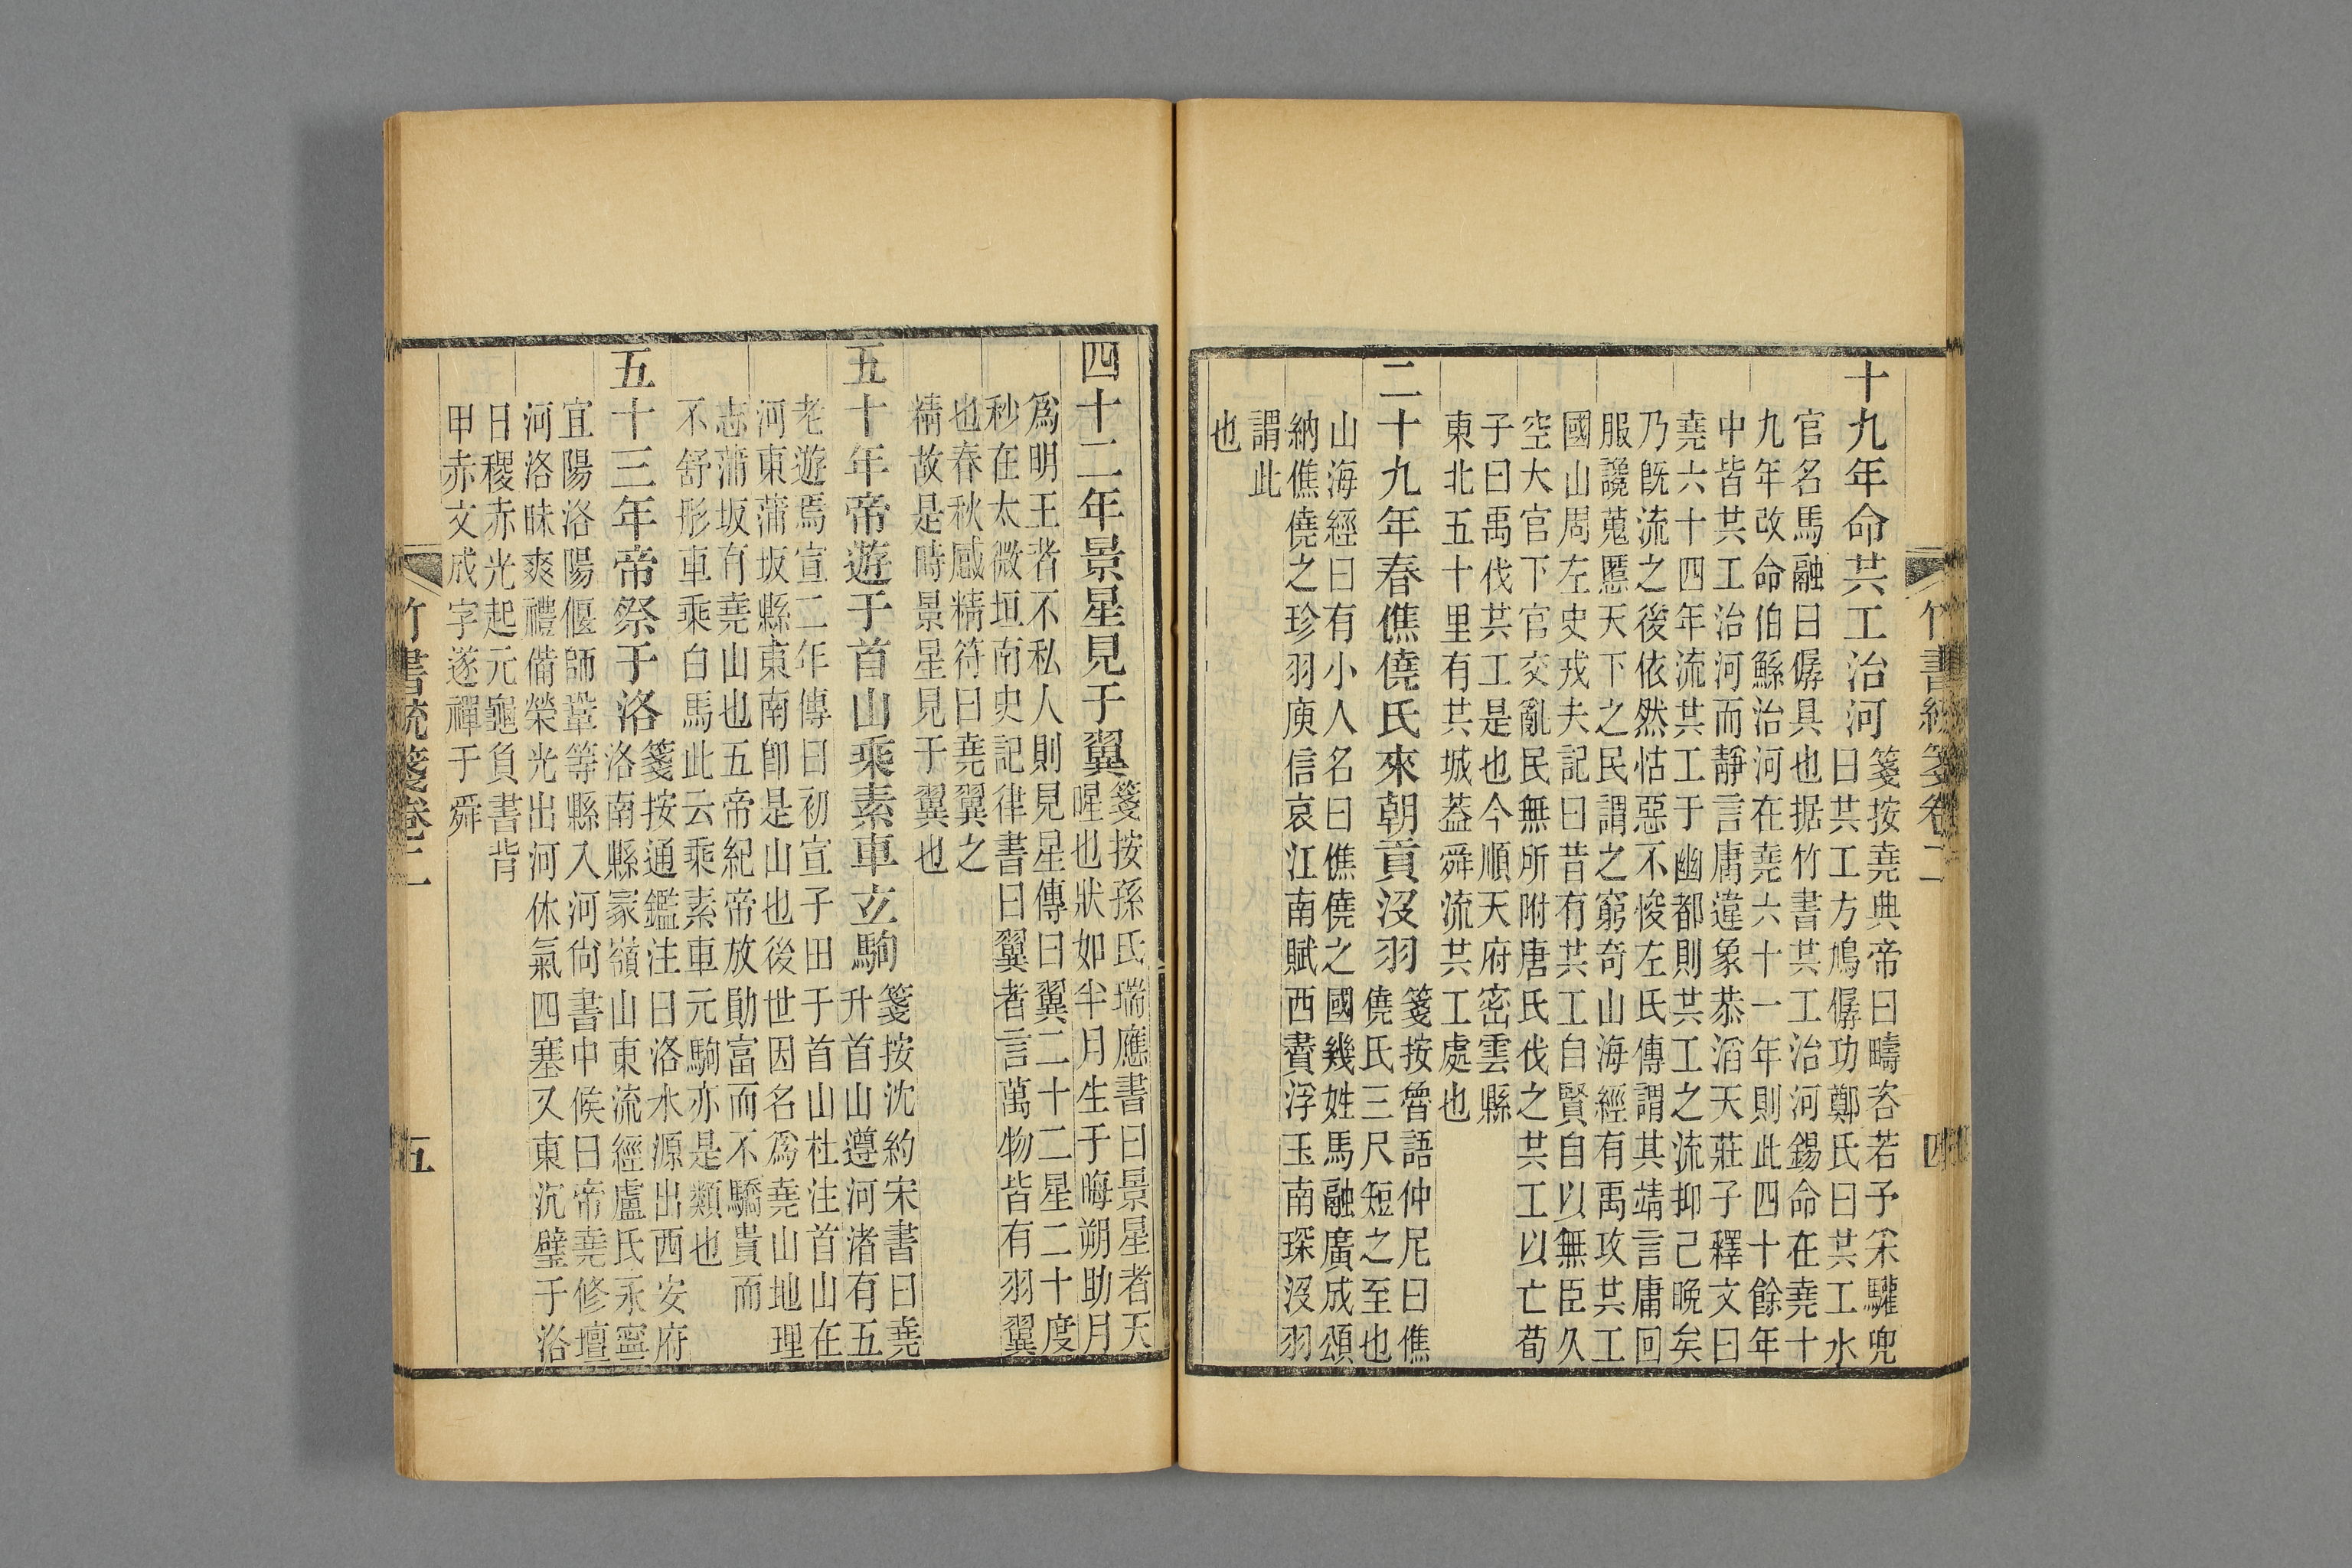 竹書統箋卷二
四
十九年命共工治河
箋按堯典帝曰疇咨若予采驩兜
曰共工方鳩僝功鄭氏曰共工水
官名馬融曰僝具也据竹書共工治河錫命在堯十
九年改命伯鯀治河在堯六十一年則此四十餘年
中皆共工治河而靜言庸違象恭滔天莊子釋文曰
堯六十四年流共工于幽都則共工之流抑己晚矣
乃旣流之後依然怙惡不悛左氏傳謂其靖言庸回
服讒蒐慝天下之民謂之窮奇山海經有禹攻共工
國山周左史戎夫記曰昔有共工自賢自以無臣久
空大官下官交亂民無所附唐氏伐之共工以亡荀
子曰禹伐共工是也今順天府密雲縣
東北五十里有共城葢舜流共工處也
二十九年春僬僥氏來朝貢沒羽
箋按魯語仲尼曰僬
僥氏三尺短之至也
山海經曰有小人名曰僬僥之國幾姓馬融廣成頌
納僬僥之珍羽庾信哀江南賦西賮浮玉南琛沒羽
謂此
也
四十二年景星見于翼
箋按孫氏瑞應書曰景星者天
暒也狀如半月生于晦朔助月
爲明王者不私人則見星傳曰翼二十二星二十度
秒在太微垣南史記律書曰翼者言萬物皆有羽翼
也春秋感精符曰堯翼之
精故是時景星見于翼也
五十年帝遊于首山乘素車玄駒
箋按沈約宋書曰堯
升首山遵河渚有五
老遊焉宣二年傳曰初宣子田于首山杜注首山在
河東蒲坂縣東南卽是山也後世因名爲堯山地理
志蒲坂有堯山也五帝紀帝放勛富而不驕貴而
不舒彤車乘白馬此云乘素車元駒亦是類也
五十三年帝祭于洛
箋按通鑑注曰洛水源出西安府
洛南縣冢嶺山東流經盧氏永寧
宜陽洛陽偃師鞏等縣入河尙書中候曰帝堯修壇
河洛昧爽禮備榮光出河休氣四塞又東沉璧于洛
日稷赤光起元龜負書背
甲赤文成字遂禪于舜
竹書統箋卷二
五